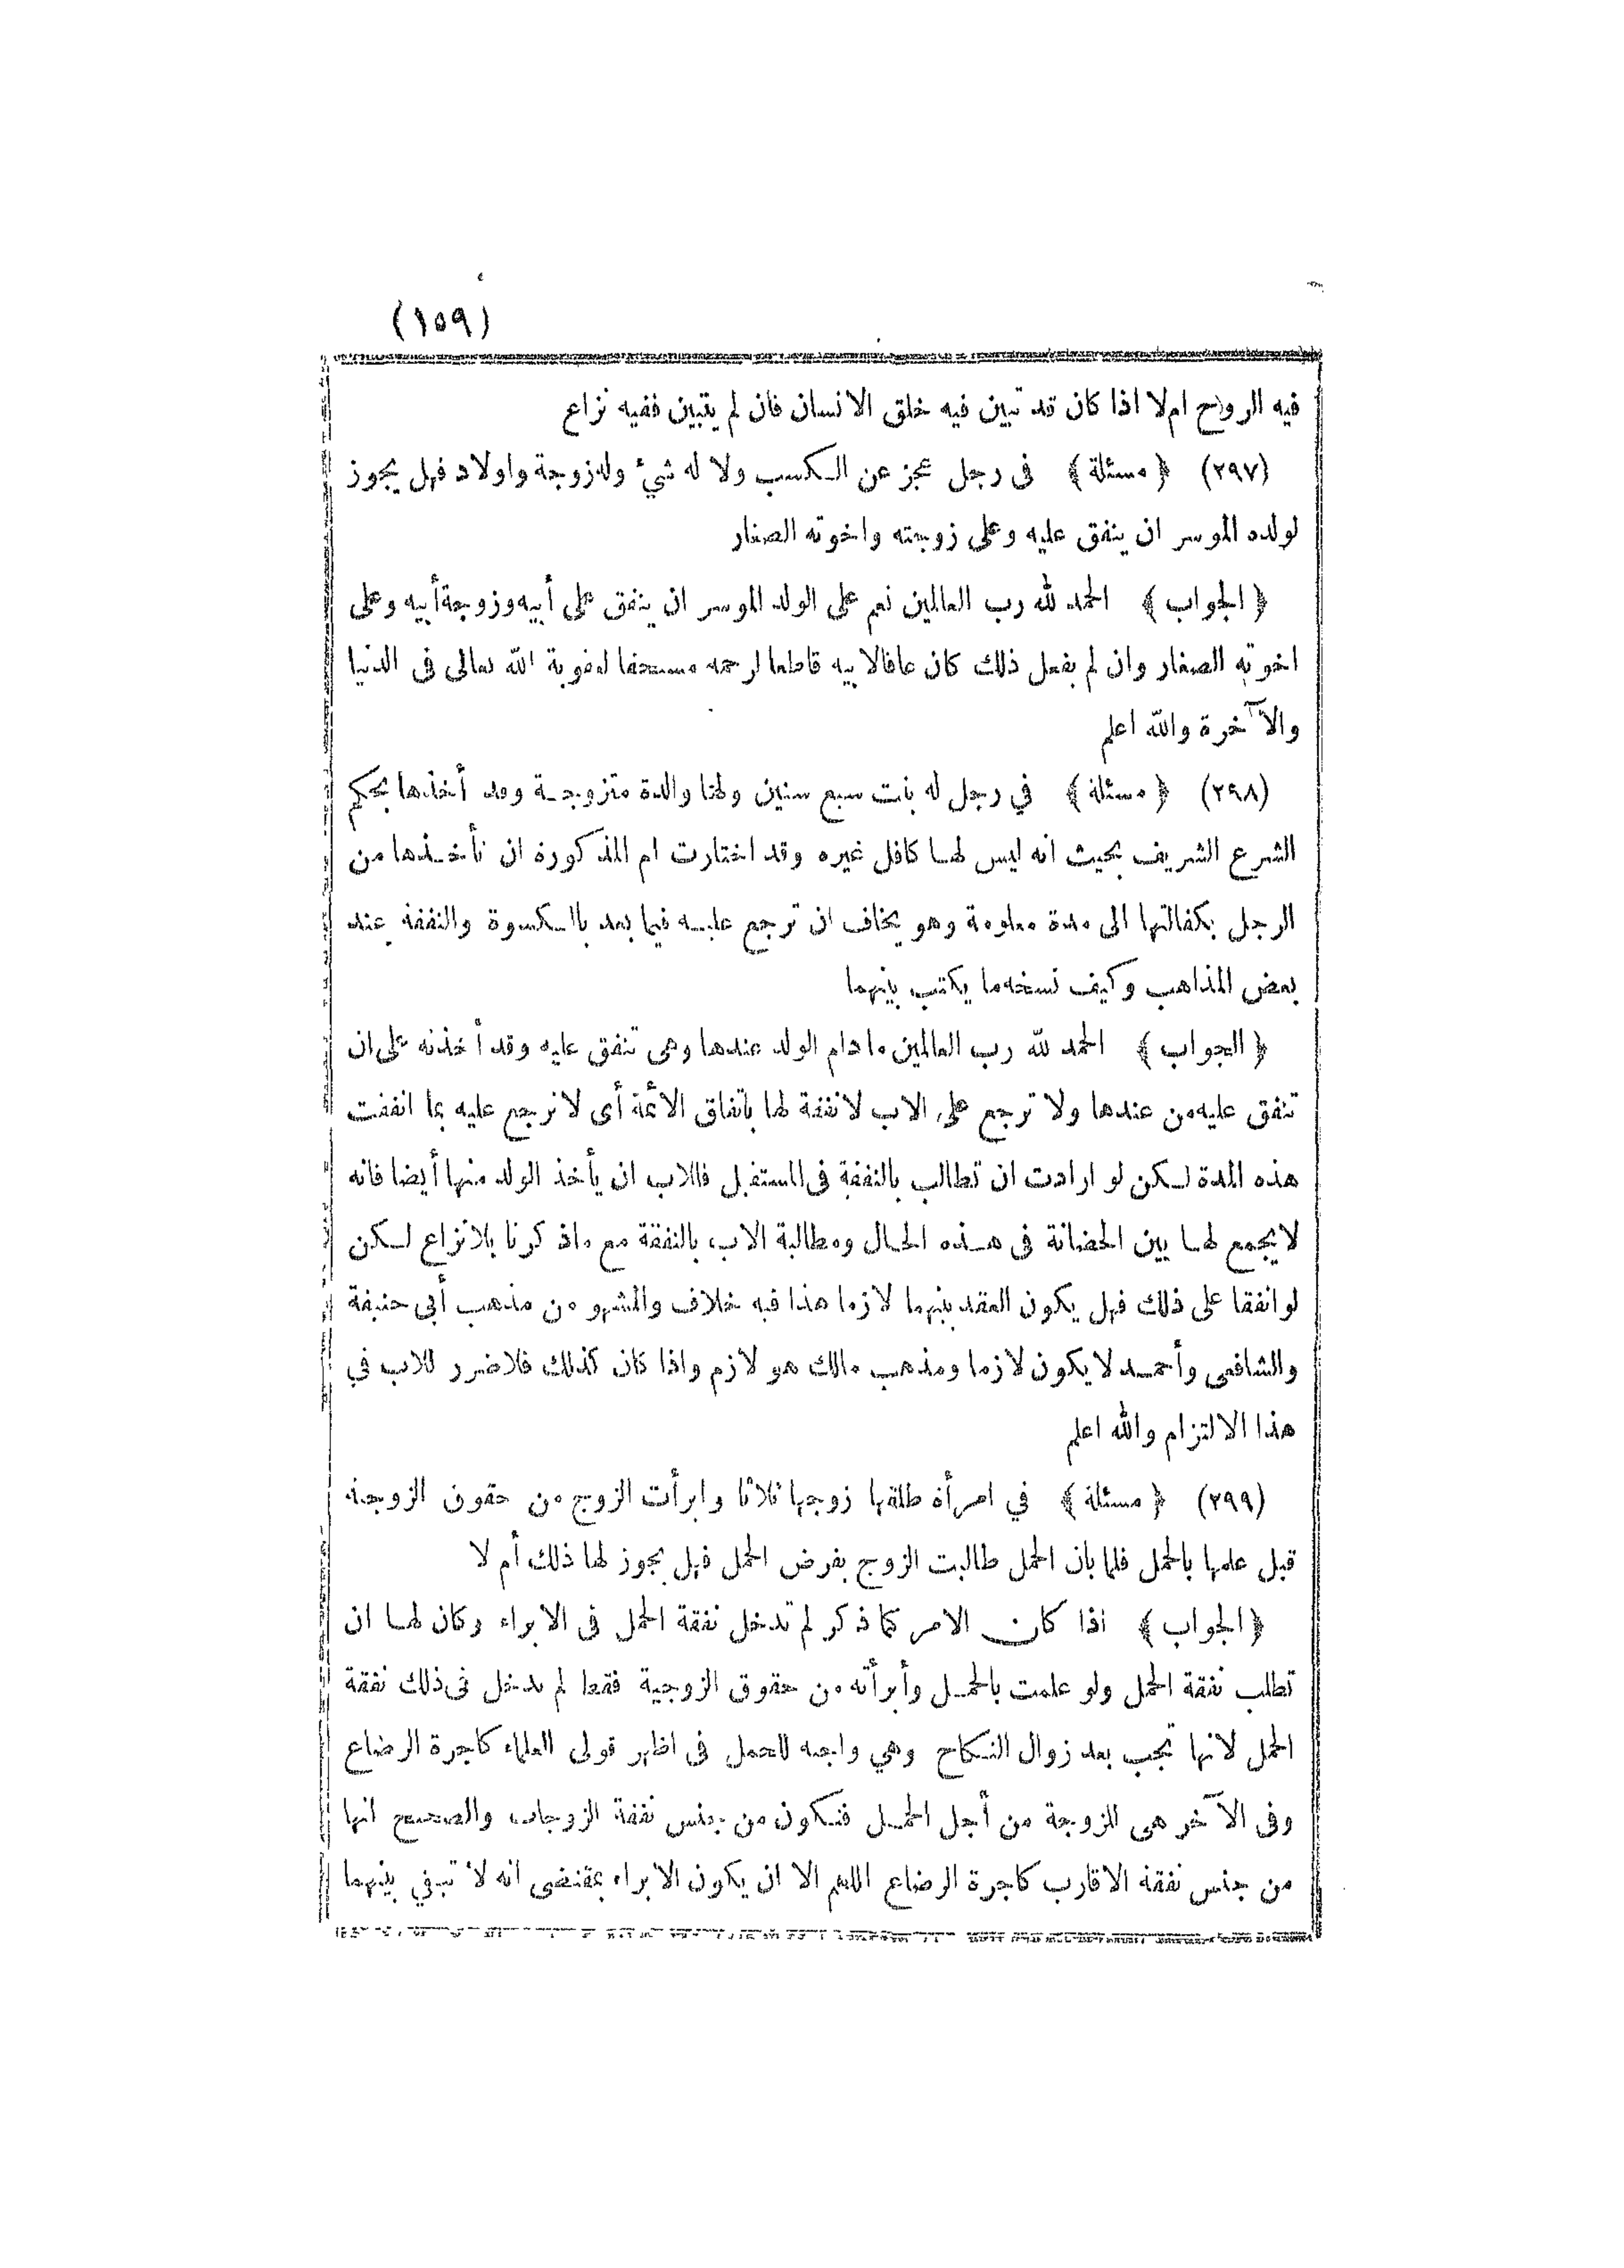 (١٥٩)
فيه الروح ام لا اذا كان قد تبين فيه خلق الانسان فان لم يتبين ففيه نزاع
(٢٩٧) ﴿ مسئلة ﴾ فى رجل عجز عن الكسب ولا له شئ وله زوجة واولاد فهل يجوز
لولده الموسر ان ينفق عليه وعلى زوجته واخوته الصغار
﴿ الجواب ﴾ الحمد لله رب العالمين نعم على الولد الموسر ان ينفق على أبيه وزوجة أبيه وعلى
اخوته الصغار وان لم يفعل ذلك كان عاقا لابيه قاطعا لرحمه مستحقا لعقوبة الله تعالى فى الدنيا
والآخرة والله اعلم
(٢٩٨) ﴿ مسئلة ﴾ في رجل له بنت سبع سنين ولها والدة متزوجة وقد أخذها بحكم
الشرع الشريف بحيث انه ليس لها كافل غيره وقد اختارت ام المذكورة ان تأخذها من
الرجل بكفالتها الى مدة معلومة وهو يخاف ان ترجع عليه فيما بعد بالكسوة والنفقة عند
بعض المذاهب وكيف نسخة ما يكتب بينهما
﴿ الجواب ﴾ الحمد لله رب العالمين ما دام الولد عندها وهى تنفق عليه وقد أخذته على ان
تنفق عليه من عندها ولا ترجع على الاب لا نفقة لها باتفاق الأئمة أى لا ترجع عليه بما انفقت
هذه المدة لكن لو ارادت ان تطالب بالنفقة فى المستقبل فللاب ان يأخذ الولد منها أيضا فانه
لا يجمع لها بين الحضانة فى هذه الحال ومطالبة الاب بالنفقة مع ما ذكرنا بلا نزاع لكن
لو اتفقا على ذلك فهل يكون العقد بينهما لازما هذا فيه خلاف والمشهو من مذهب أبى حنيفة
والشافعى وأحمد لا يكون لازما ومذهب مالك هو لازم واذا كان كذلك فلا ضرر للاب في
هذا الالتزام والله اعلم
(٢٩٩) ﴿ مسئلة ﴾ في امرأة طلقها زوجها ثلاثا وابرأت الزوج من حقوق الزوجية
قبل علمها بالحمل فلما بان الحمل طالبت الزوج بفرض الحمل فهل يجوز لها ذلك أم لا
﴿ الجواب ﴾ اذا كان الامر كما ذكر لم تدخل نفقة الحمل فى الابراء وكان لها ان
تطلب نفقة الحمل ولو علمت بالحمل وأبرأته من حقوق الزوجية فقط لم يدخل فى ذلك نفقة
الحمل لانها تجب بعد زوال النكاح وهي واجبة للحمل فى اظهر قولى العلماء كاجرة الرضاع
وفى الآخر هى للزوجة من أجل الحمل فتكون من جنس نفقة الزوجات والصحيح انها
من جنس نفقة الاقارب كاجرة الرضاع اللهم الا ان يكون الابراء بمقتضى انه لا تبقي بينهما